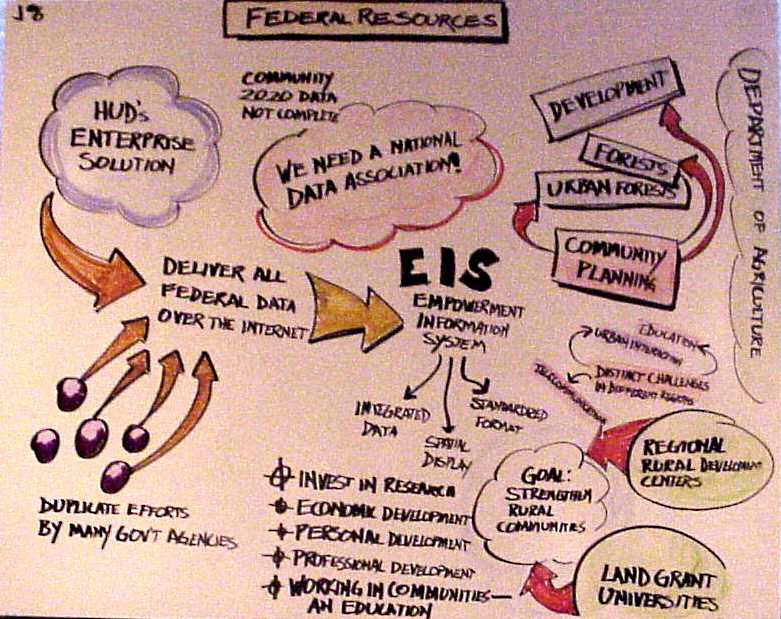 18
FEDERAL RESOURCES
HUD'S
ENTERPRISE
SOLUTION
COMMUNITY
2020 DATA
NOT COMPLETE
WE NEED A NATIONAL
DATA ASSOCIATION!
DEVELOPMENT
FORESTS
URBAN FORESTS
COMMUNITY
PLANNING
DEPARTMENT OF AGRICULTURE
DELIVER ALL
FEDERAL DATA
OVER THE INTERNET
EIS
EMPOWERMENT
INFORMATION
SYSTEM
INTEGRATED
DATA
SPATIAL
DISPLAY
STANDARDIZED
FORMAT
EDUCATION
URBAN INTERACTION
DISTINCT CHALLENGES
IN DIFFERENT REGIONS
TELECOMMUNICATIONS
DUPLICATE EFFORTS
BY MANY GOV'T AGENCIES
INVEST IN RESEARCH
ECONOMIC DEVELOPMENT
PERSONAL DEVELOPMENT
PROFESSIONAL DEVELOPMENT
WORKING IN COMMUNITIES—
AN EDUCATION
GOAL:
STRENGTHEN
RURAL
COMMUNITIES
REGIONAL
RURAL DEVELOPMENT
CENTERS
LAND GRANT
UNIVERSITIES